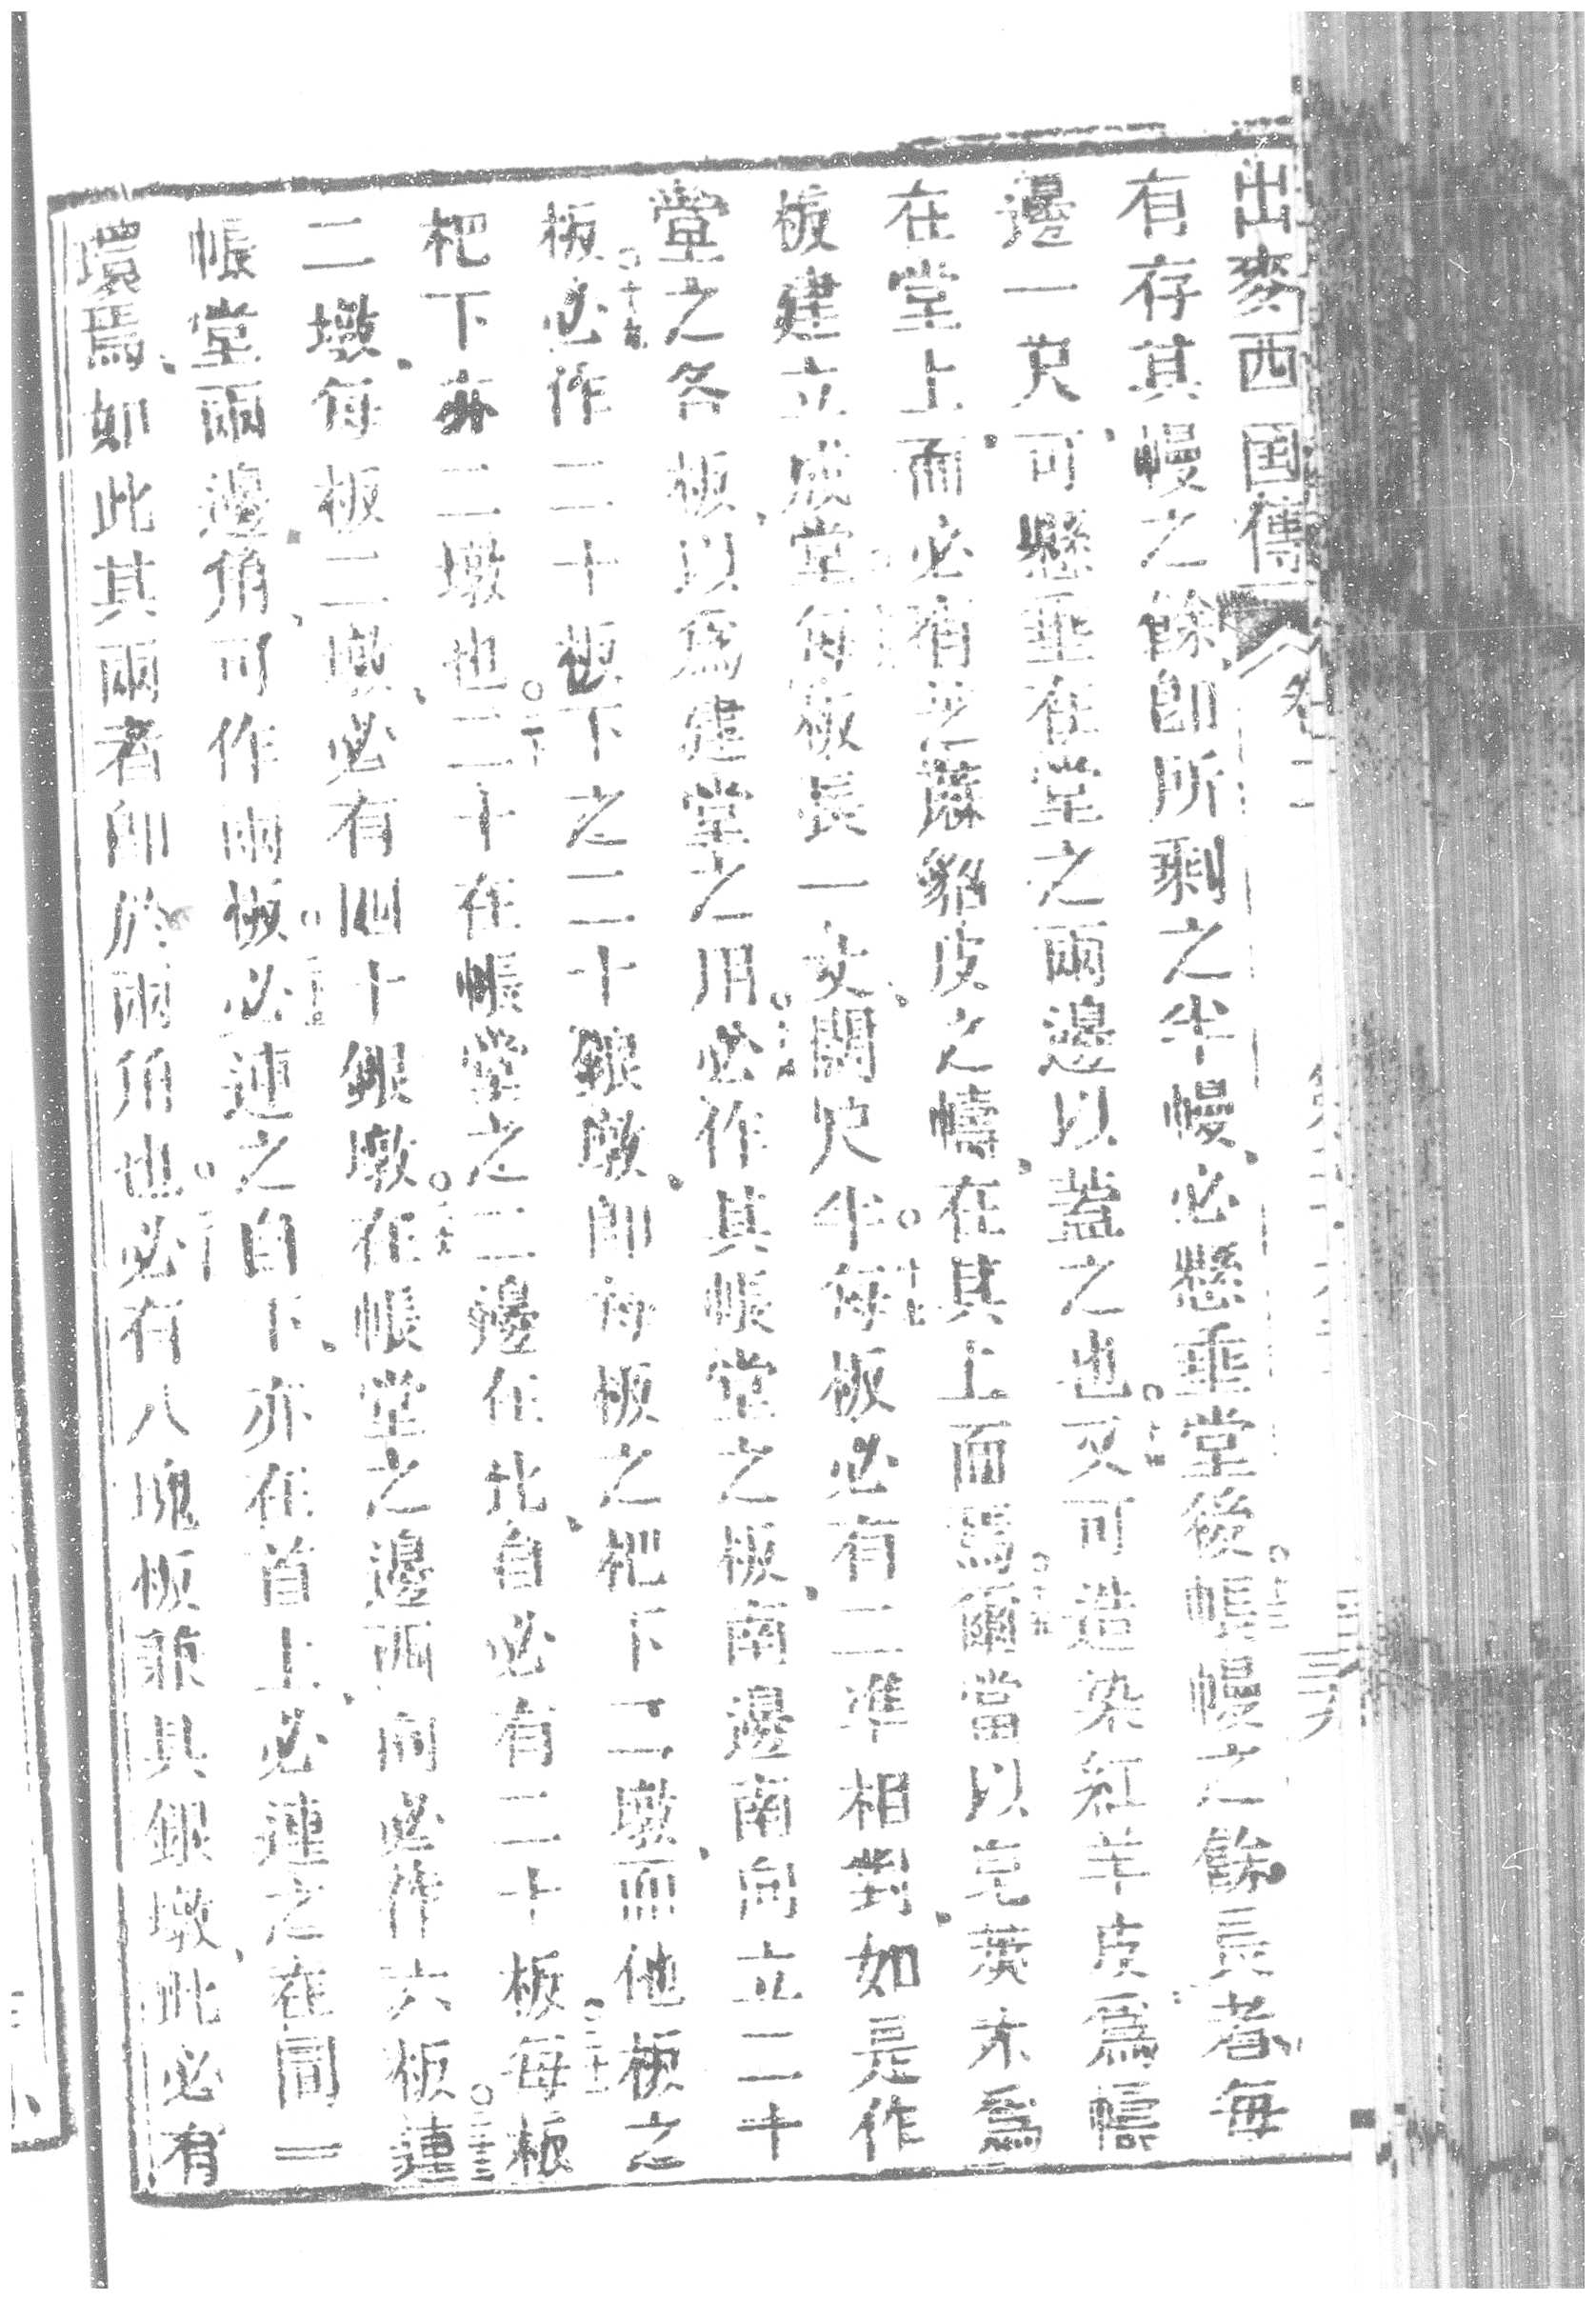 出麥西国傳 卷二
有存其幔之餘卽所剩之半幔、必懸垂堂後○帳幔之餘長者毎
邊一尺、可懸垂在堂之兩邊以蓋之也○又可造染紅羊皮爲幬
在堂上、而必有芝蔴貂皮之幬、在其上面焉○爾當以皂莢木爲
板建立成堂每板長一丈、闊尺半○每板必有二準相對、如是作
堂之各板、以爲建堂之用○必作其帳堂之板、南邊南向立二十
板○必作二十板下之二十銀墩、卽每板之杷下二墩、而他板之
杷下亦二墩也○二十在帳堂之二邊在北、自必有二十板○每板
二墩、每板二墩、必有四十銀墩○在帳堂之邊西向、必作六板○連
帳堂兩邊角、可作兩板○必連之自下、亦在首上、必連之在同一
環焉、如此其兩者卽於兩角也○必有八塊板兼其銀墩、此必有